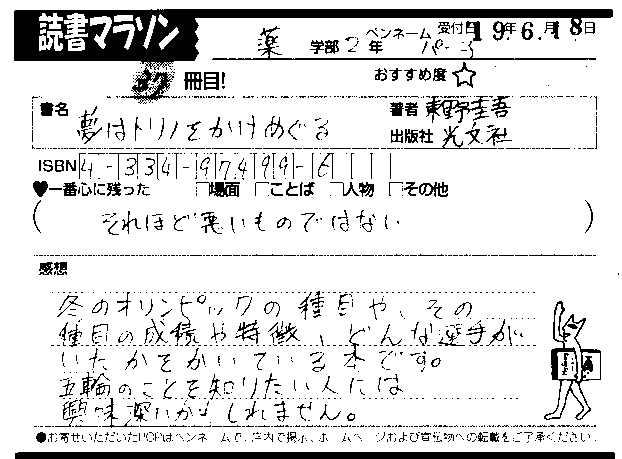 読書マラソン
薬 学部 2 年 ペンネーム パーコ 受付日 19年6月18日
37 冊目!
おすすめ度☆
書名 夢はトリノをかけめぐる
著者 東野圭吾
出版社 光文社
ISBN 4-334-97499-6
♥一番心に残った □場面 □ことば □人物 □その他
( それほど悪いものではない )
感想
冬のオリンピックの種目や、その
種目の成績や特徴、どんな選手が
いたかをかいている本です。
五輪のことを知りたい人には
興味深いかもしれません。
●お寄せいただいたPOPはペンネームで、店内で掲示、ホームページおよび宣伝物への転載をご了承ください。